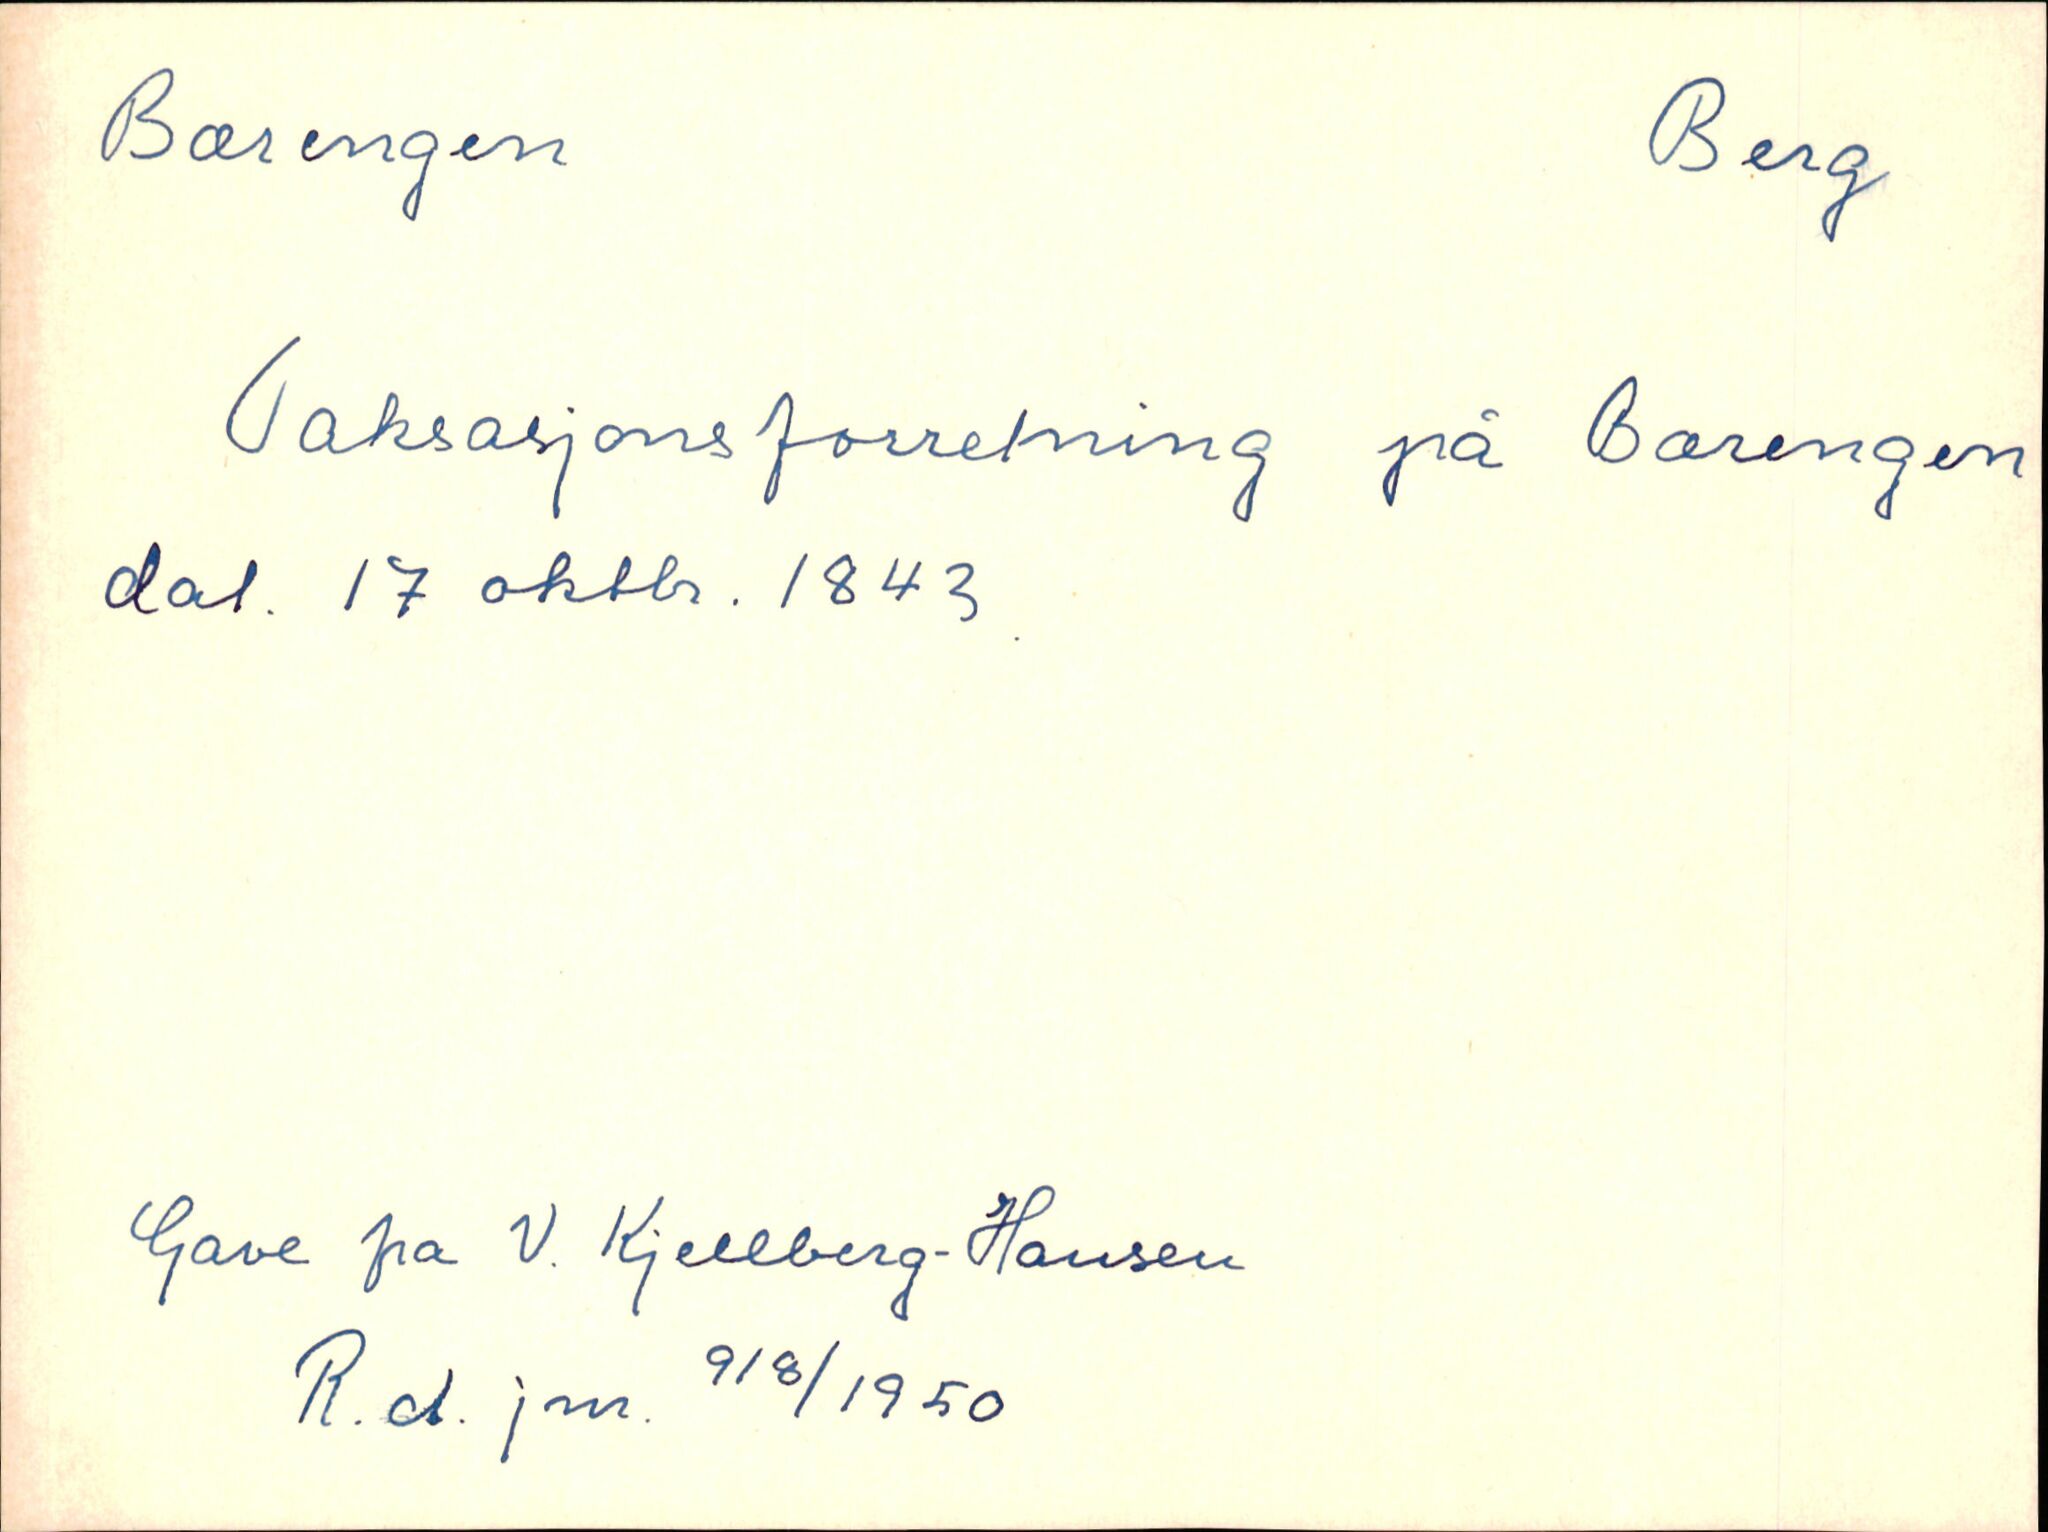 Bærengen Berg
Taksasjonsforretning på Bærengen
dat. 17 oktbr. 1843.
Gave fra V. Kjellberg-Hansen
R.d. jnr. 918/1950